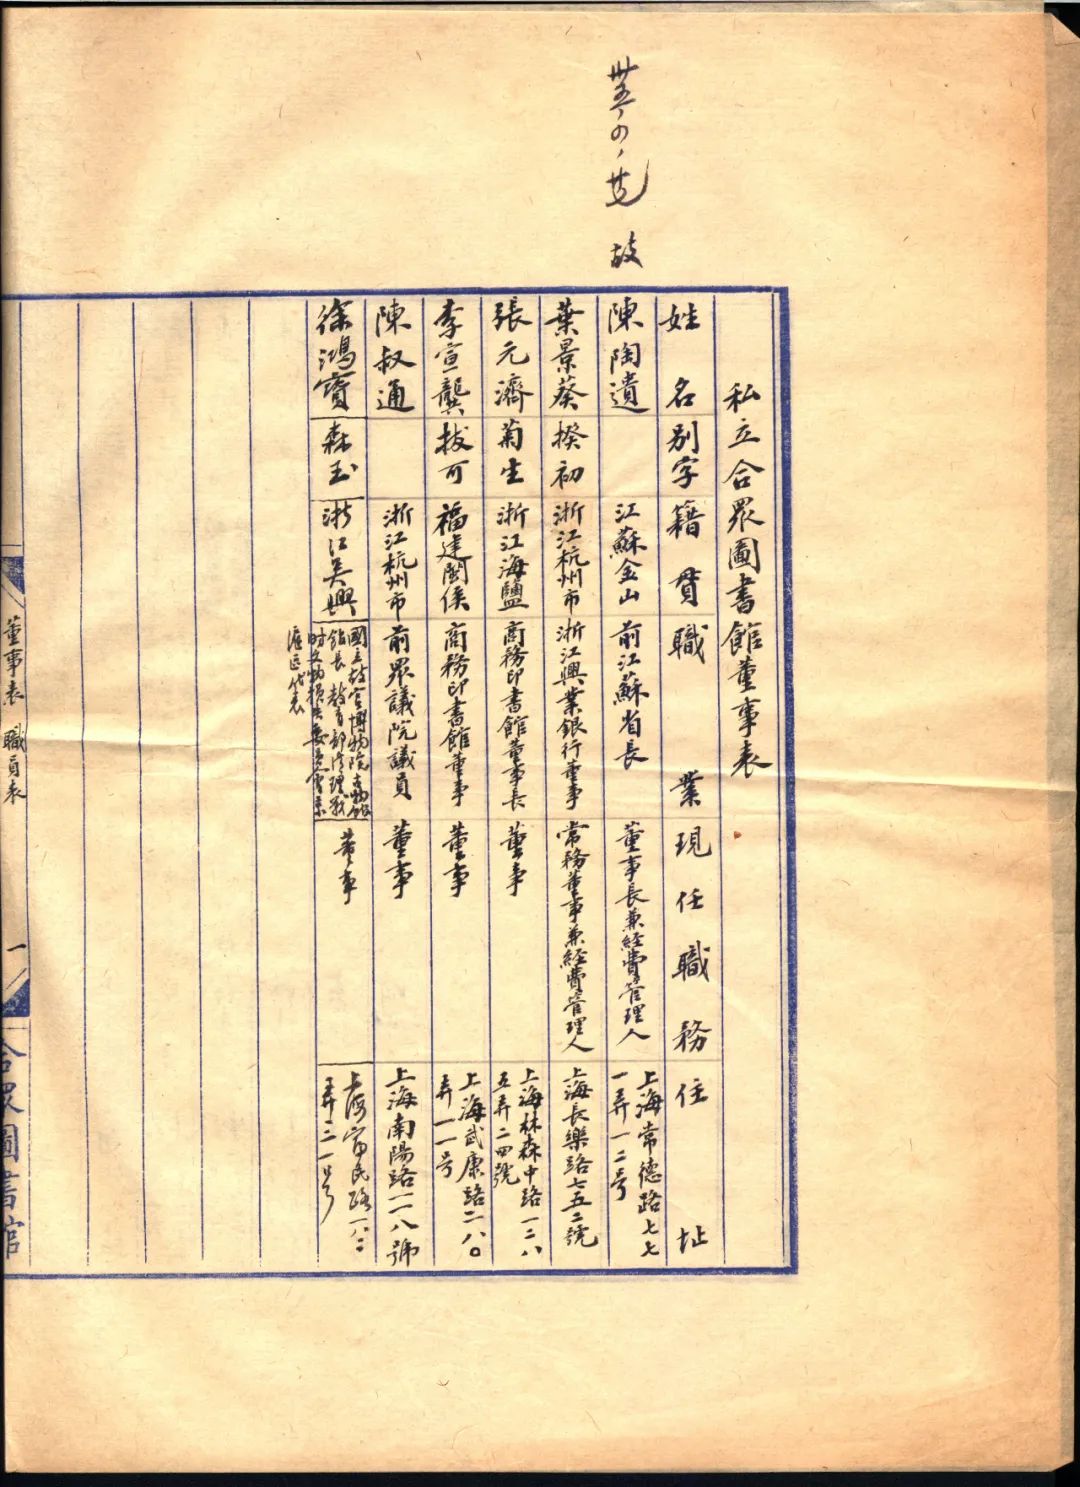 故
私立合眾圖書館董事表
姓名 別字 籍貫 職業 現任職務 住址
陳陶遺 江蘇金山 前江蘇省長 董事長兼經費管理人 上海常德路七七
一弄一二号
葉景葵 揆初 浙江杭州市 浙江興業銀行董事 常務董事兼經費管理人 上海長樂路七五二號
張元濟 菊生 浙江海鹽 商務印書館董事長 董事 上海林森中路一二八
五弄二四號
李宣龔 拔可 福建閩侯 商務印書館董事 董事 上海武康路二八〇
弄一一号
陳叔通 浙江杭州市 前眾議院議員 董事 上海南陽路一一八號
徐鴻寶 森玉 浙江吳興 國立故宮博物院古物館
館長 教育部清理戰
時文物損失委員會京
滬區代表 董事 上海富民路一八二
弄二一号
董事表 職員表
一
合眾圖書館